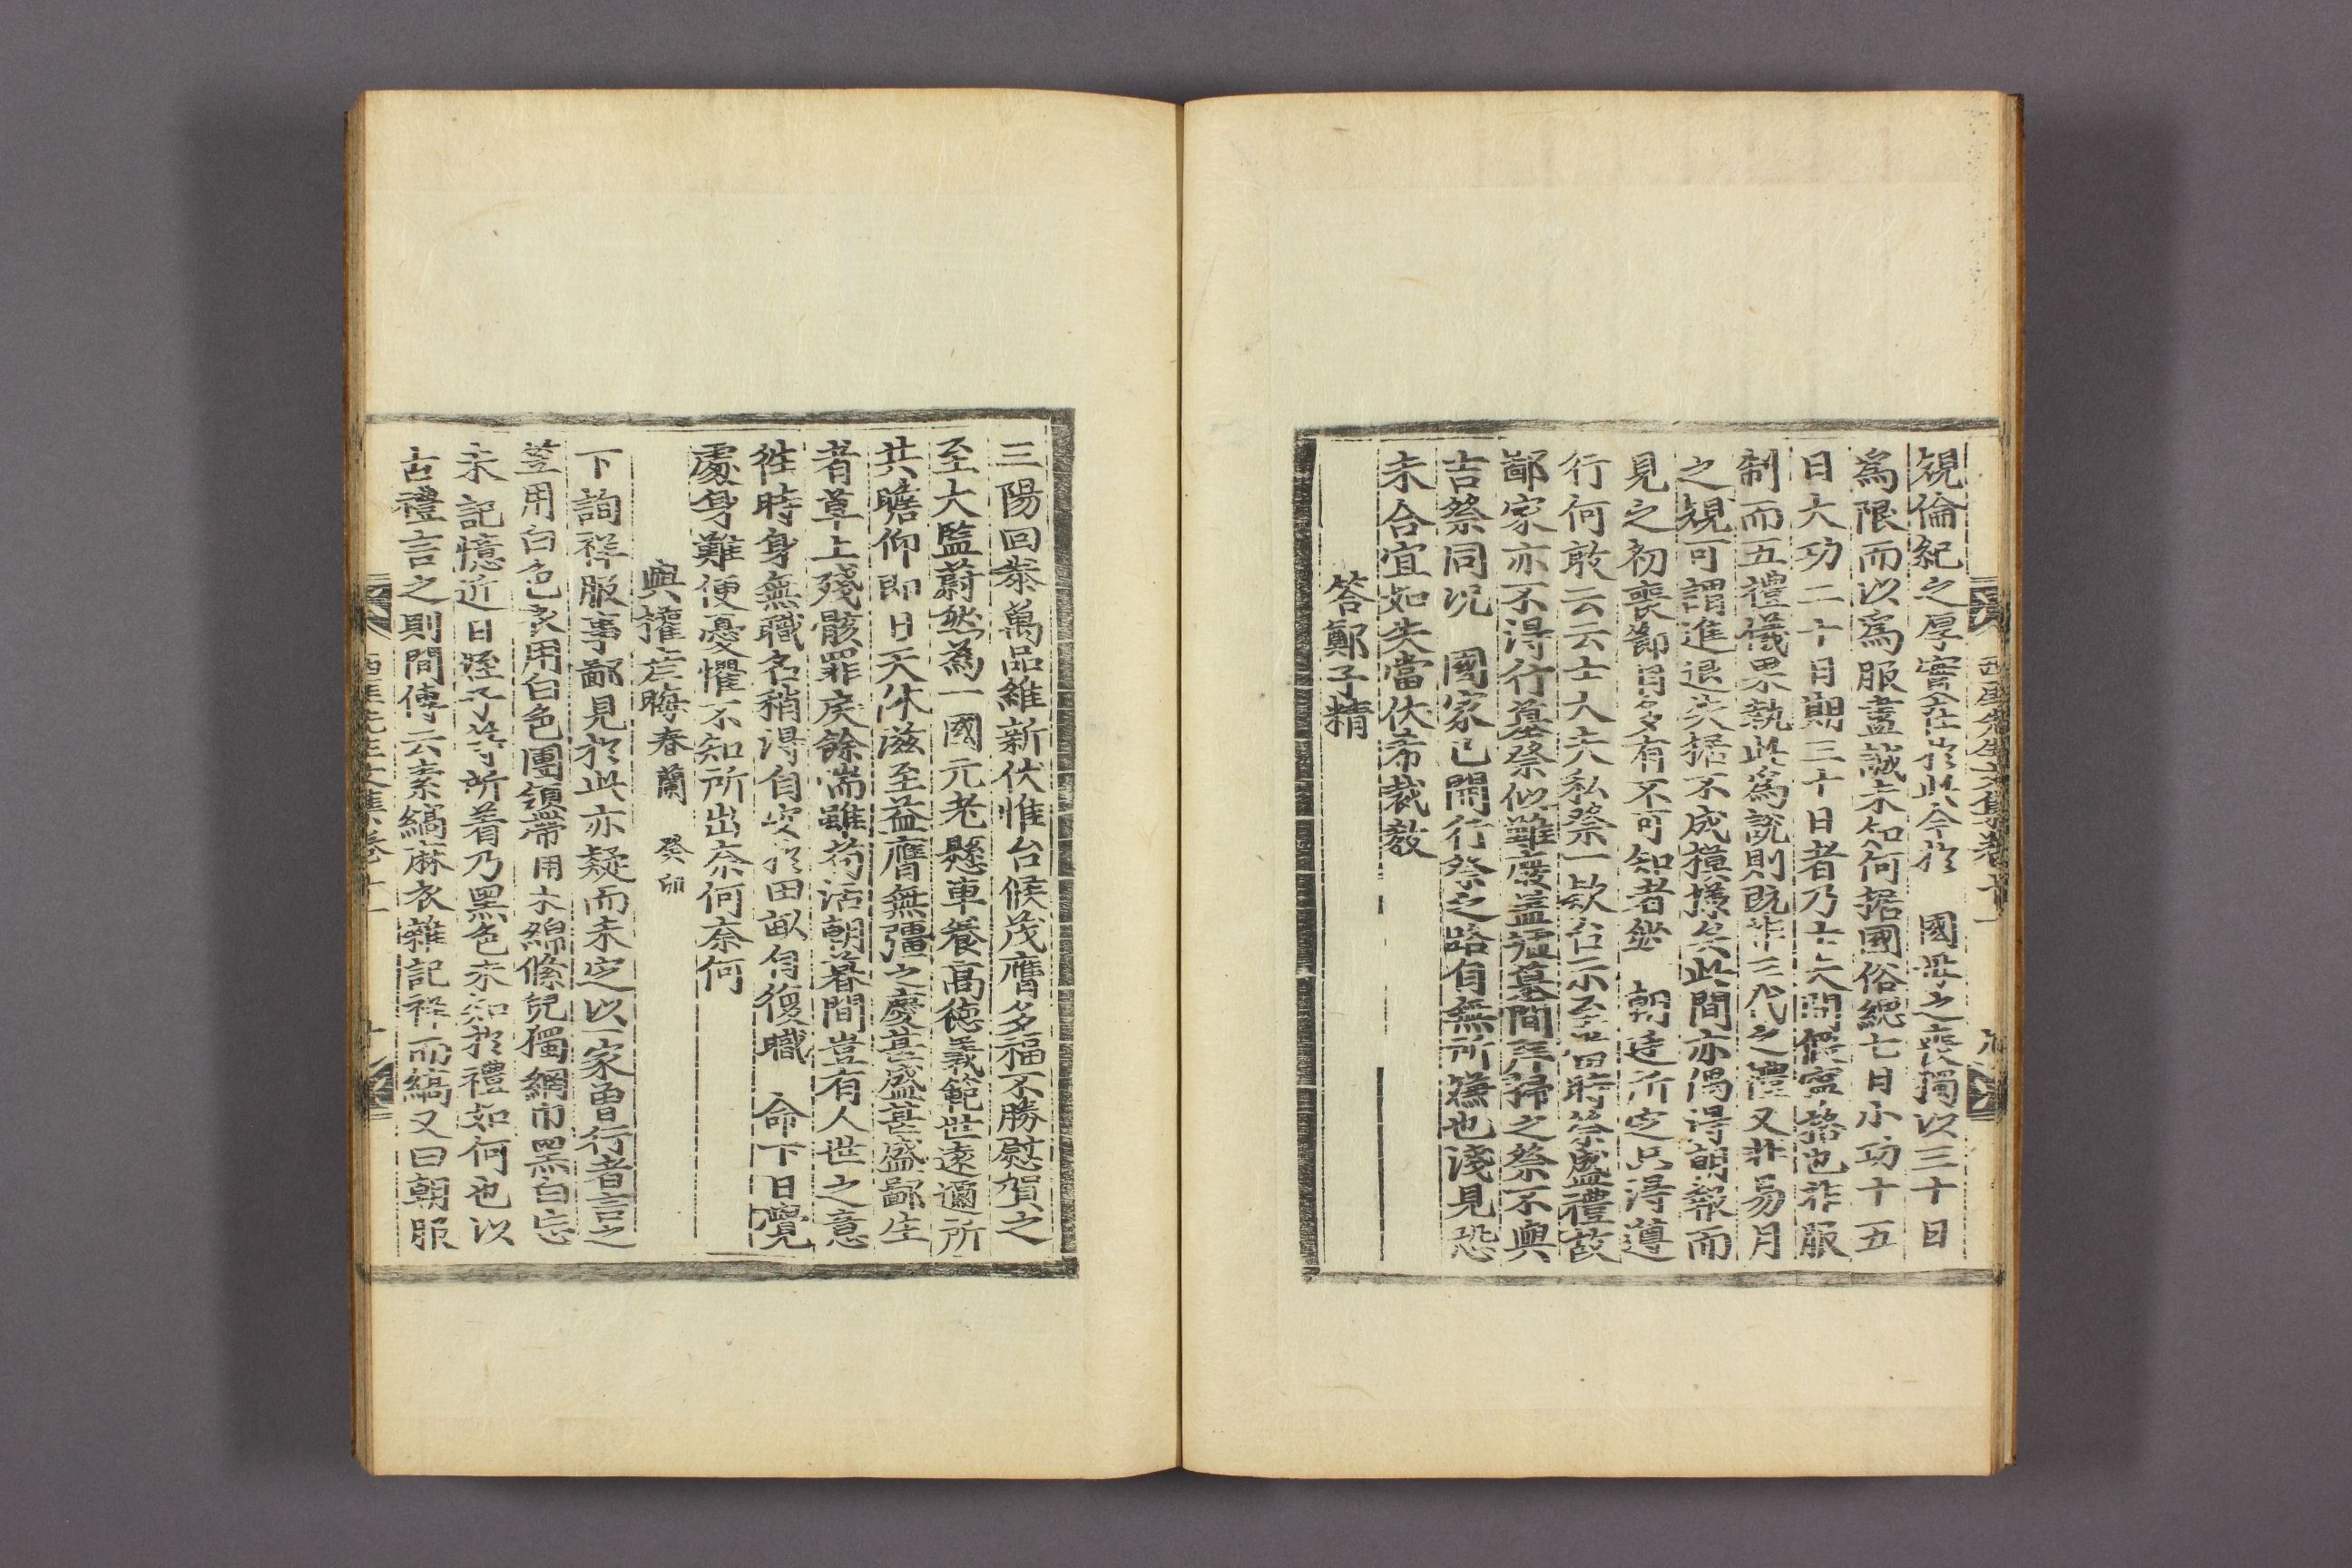 西厓先生文集卷十一
規倫紀之厚實在於此今於 國母之喪獨以三十日
爲限而以爲服盡誠未知何据國俗緦七日小功十五
日大功二十日期三十日者乃士夫間假寧格也非服
制而五禮儀略執此爲說則旣非三代之禮又非易月
之規可謂進退失据不成模樣矣此間亦偶得朝報而
見之初喪節目多有不可知者然 朝廷所定只得遵
行何敢云云士大夫私祭一款台示至當時祭盛禮故
鄙家亦不得行墓祭似難廢盖荒墓間拜掃之祭不與
吉祭同况 國家已開行祭之路自無所嫌也淺見恐
未合宜如失當伏希裁敎
答鄭子精
三陽回泰萬品維新伏惟台候茂膺多福不勝慰賀之
至大監蔚然爲一國元老懸車養高德義範世遠邇所
共瞻仰卽日天休滋至益膺無疆之慶甚盛甚盛鄙生
者草土殘骸罪戾餘喘雖苟活朝暮間豈有人世之意
徃時身無職名稍得自安於田畝自復職 命下日覺
處身難便憂懼不知所出奈何奈何
與權彦晦春蘭 癸卯
下詢祥服事鄙見於此亦疑而未定以一家曾行者言之
笠用白色衣用白色團領帶用木綿絛兒獨網巾黑白忘
未記憶近日姪子等所着乃黑色未知於禮如何也以
古禮言之則間傳云素縞麻衣雜記祥而縞又曰朝服
西厓先生文集卷十一